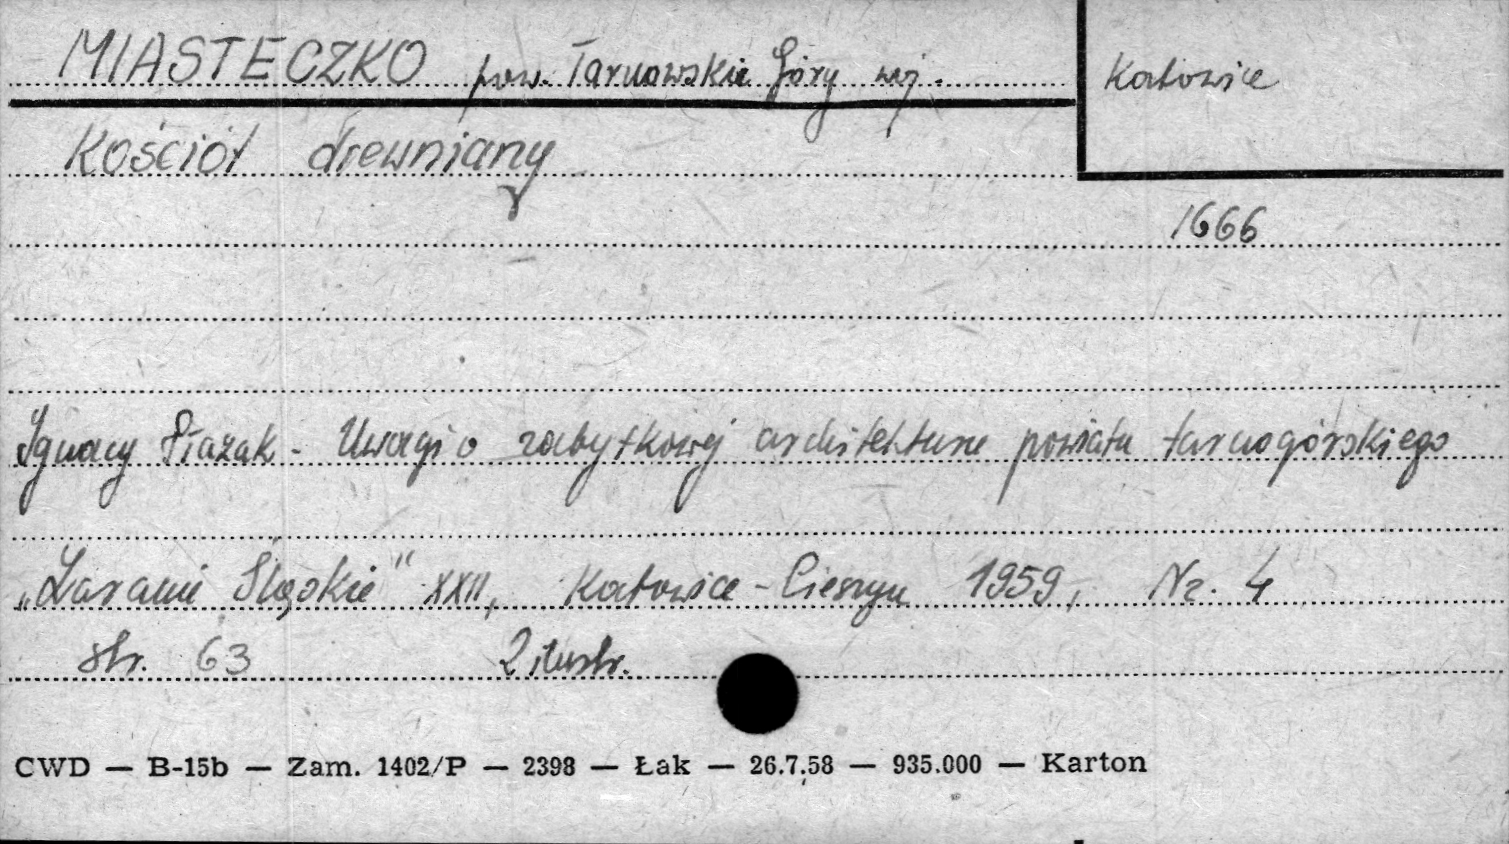 MIASTECZKO pow. Tarnowskie Góry woj. Katowice
Kościół drewniany
1666
Ignacy Płazak - Uwagi o zabytkowej architekturze powiatu tarnogórskiego
„Zaranie Śląskie" XXII, Katowice - Cieszyn 1959, Nr. 4
str. 63 2 ilustr.
CWD — B-15b — Zam. 1402/P — 2398 — Łak — 26.7.58 — 935.000 — Karton